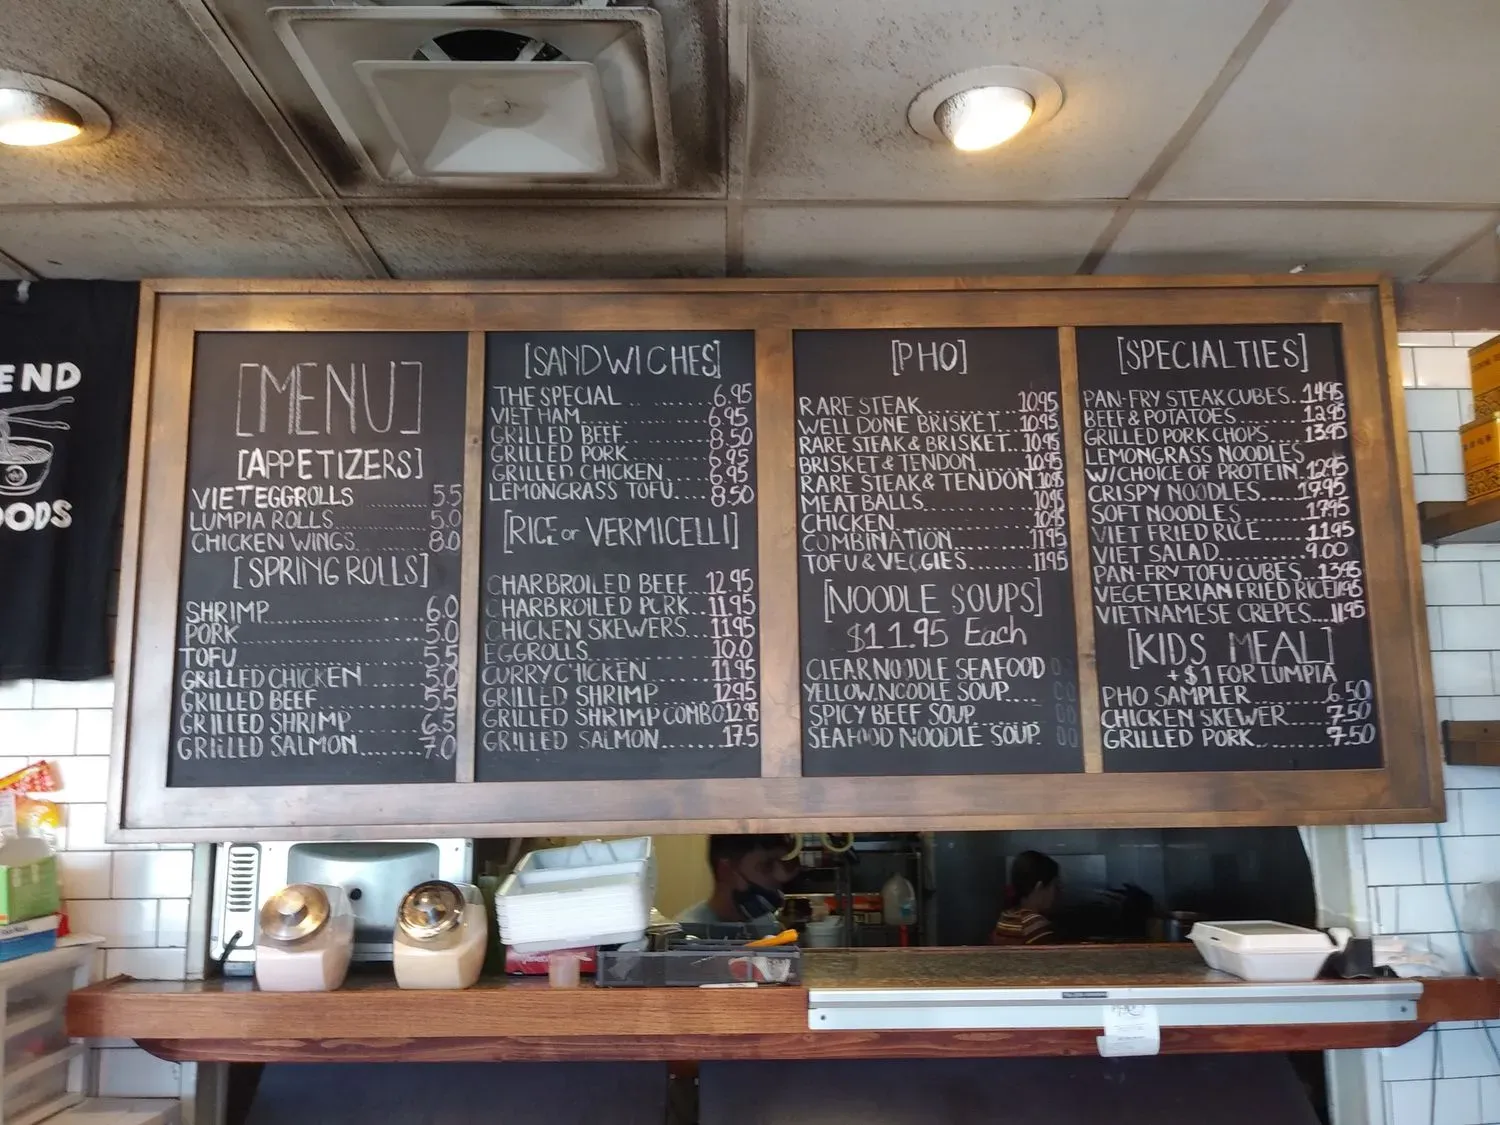 END
OODS
[MENU]
[APPETIZERS]
VIET EGGROLLS 5.5
LUMPIA ROLLS 5.0
CHICKEN WINGS 8.0
[SPRING ROLLS]
SHRIMP 6.0
PORK 5.0
TOFU 5.5
GRILLED CHICKEN 5.0
GRILLED BEEF 5.5
GRILLED SHRIMP 6.5
GRILLED SALMON 7.0
[SANDWICHES]
THE SPECIAL 6.95
VIET HAM 6.95
GRILLED BEEF 8.50
GRILLED PORK 6.95
GRILLED CHICKEN 6.95
LEMONGRASS TOFU 8.50
[RICE or VERMICELLI]
CHARBROILED BEEF 12.95
CHARBROILED PORK 11.95
CHICKEN SKEWERS 11.95
EGGROLLS 10.0
CURRY CHICKEN 11.95
GRILLED SHRIMP 12.95
GRILLED SHRIMP COMBO 12.95
GRILLED SALMON 17.5
[PHO]
RARE STEAK 10.95
WELL DONE BRISKET 10.95
RARE STEAK & BRISKET 10.95
BRISKET & TENDON 10.95
RARE STEAK & TENDON
MEATBALLS 10.95
CHICKEN 10.95
COMBINATION 11.95
TOFU & VEGGIES 11.95
[NOODLE SOUPS]
$11.95 Each
CLEAR NOODLE SEAFOOD
YELLOW NOODLE SOUP
SPICY BEEF SOUP
SEAFOOD NOODLE SOUP
[SPECIALTIES]
PAN-FRY STEAK CUBES 14.95
BEEF & POTATOES 12.95
GRILLED PORK CHOPS 13.95
LEMONGRASS NOODLES
W/CHOICE OF PROTEIN 12.95
CRISPY NOODLES 17.95
SOFT NOODLES 17.95
VIET FRIED RICE 11.95
VIET SALAD 9.00
PAN-FRY TOFU CUBES 13.95
VEGETERIAN FRIED RICE 11.95
VIETNAMESE CREPES 11.95
[KIDS MEAL]
+$1 FOR LUMPIA
PHO SAMPLER 6.50
CHICKEN SKEWER 7.50
GRILLED PORK 7.50